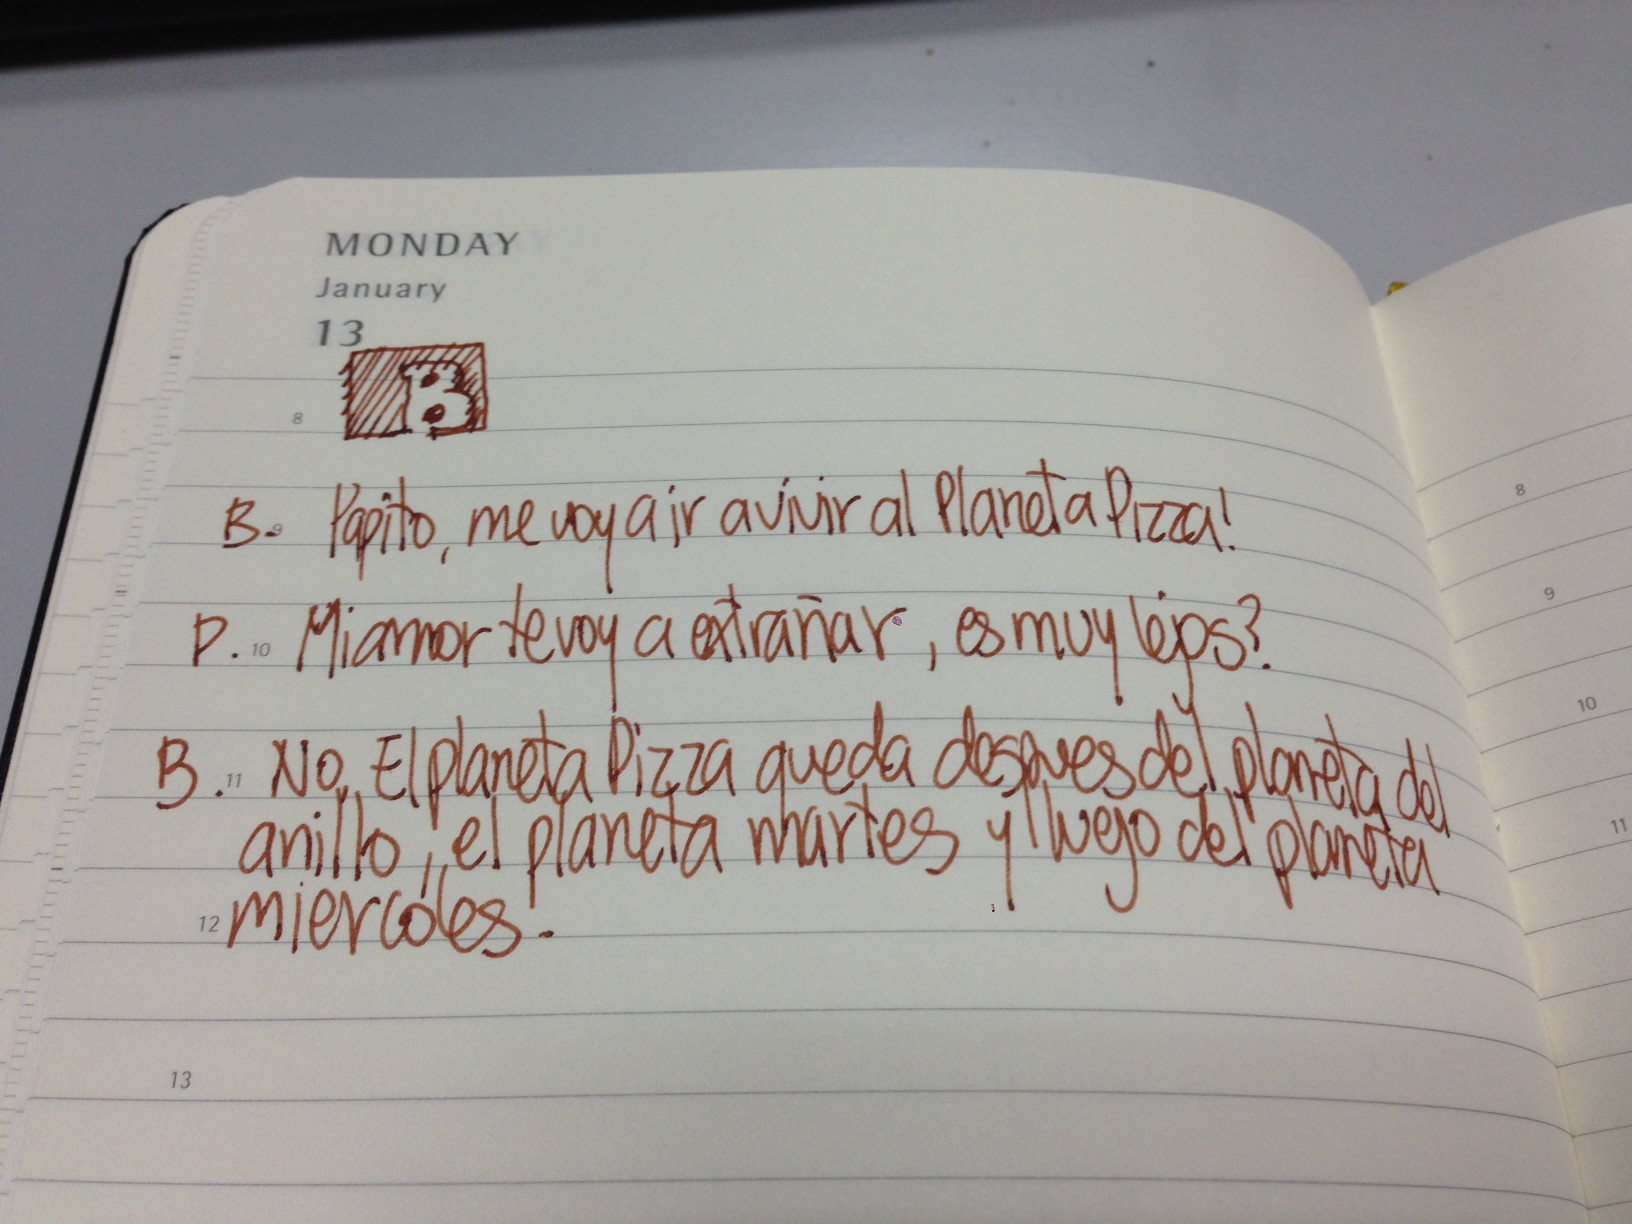 MONDAY
January
13
B
8
B. 9 Papito, me voy a ir a vivir al Planeta Pizza!
P. 10 Mi amor te voy a extrañar, es muy lejos?
B. 11 No, El planeta Pizza queda despues del planeta del
anillo, el planeta martes y luego del planeta
12 miercoles.
13
8
9
10
11